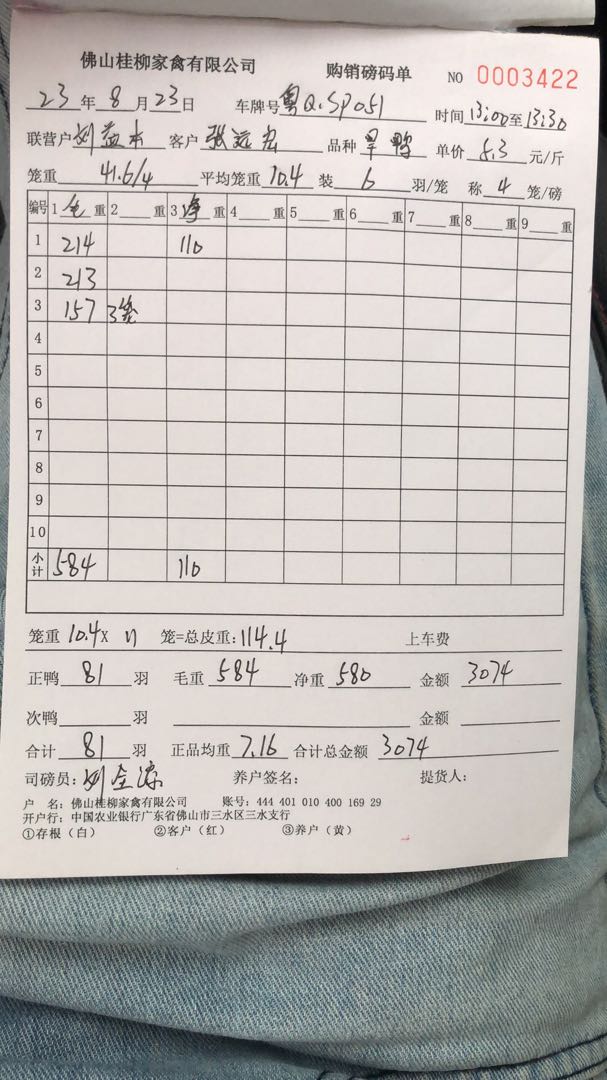 佛山桂柳家禽有限公司 购销磅码单 NO 0003422
23年8月23日 车牌号粤Q·SP051 时间13:00至13:30
联营户刘益本 客户张远宏 品种旱鸭 单价5.3元/斤
笼重41.6/4 平均笼重10.4 装6羽/笼 称4笼/磅
编号 1毛重 2重 3净重 4重 5重 6重 7重 8重 9重
1 214 110
2 213
3 157 3笼
4
5
6
7
8
9
10
小计 584 110
笼重10.4× 11 笼=总皮重:114.4 上车费
正鸭81羽 毛重584 净重580 金额3074
次鸭羽 金额
合计81羽 正品均重7.16 合计总金额3074
司磅员:刘 养户签名: 提货人:
户 名:佛山桂柳家禽有限公司 账号:444 401 010 400 169 29
开户行:中国农业银行广东省佛山市三水区三水支行
①存根(白) ②客户(红) ③养户(黄)